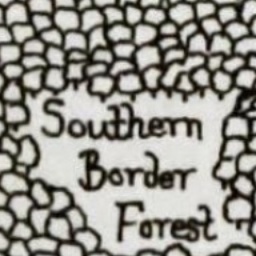 Southern
Border
Forest